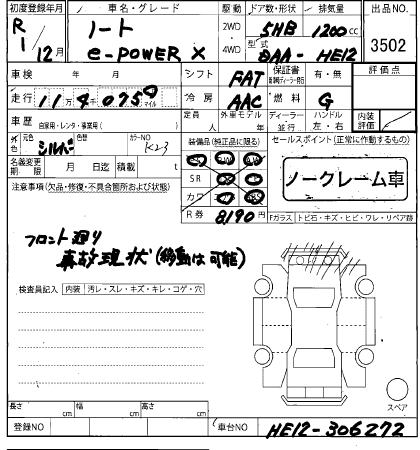 初度登録年月 車名・グレード 駆動 ドア数・形状 排気量 出品NO.
R1/12月 ノート e-POWER X 2WD 4WD 5HB 1200cc 3502
型式 DAA-HE12
車検 年 月 シフト FAT 保証書 有・無 評価点
走行 11万4075km マイル 冷房 AAC 燃料 G
車歴 自家用・レンタ・事業用( ) 定員 人 外車モデル 年 ディーラー 並行 ハンドル 左・右 内装評価
外色 元色 シルバー 色替 カラーNO K23 装備品(純正品に限る) セールスポイント(正常に作動するもの)
名義変更期限 月 日迄 積載 t ノークレーム車
注意事項(欠品・修復・不具合箇所および状態) SR カワ
R券 8190円 Fガラス トビ石・キズ・ヒビ・ワレ・リペア跡
フロント廻り
事故現状(移動は可能)
検査員記入 内装 汚レ・スレ・キズ・キレ・コゲ・穴
スペア
長さ cm 幅 cm 高さ cm
登録NO 車台NO HE12-306272